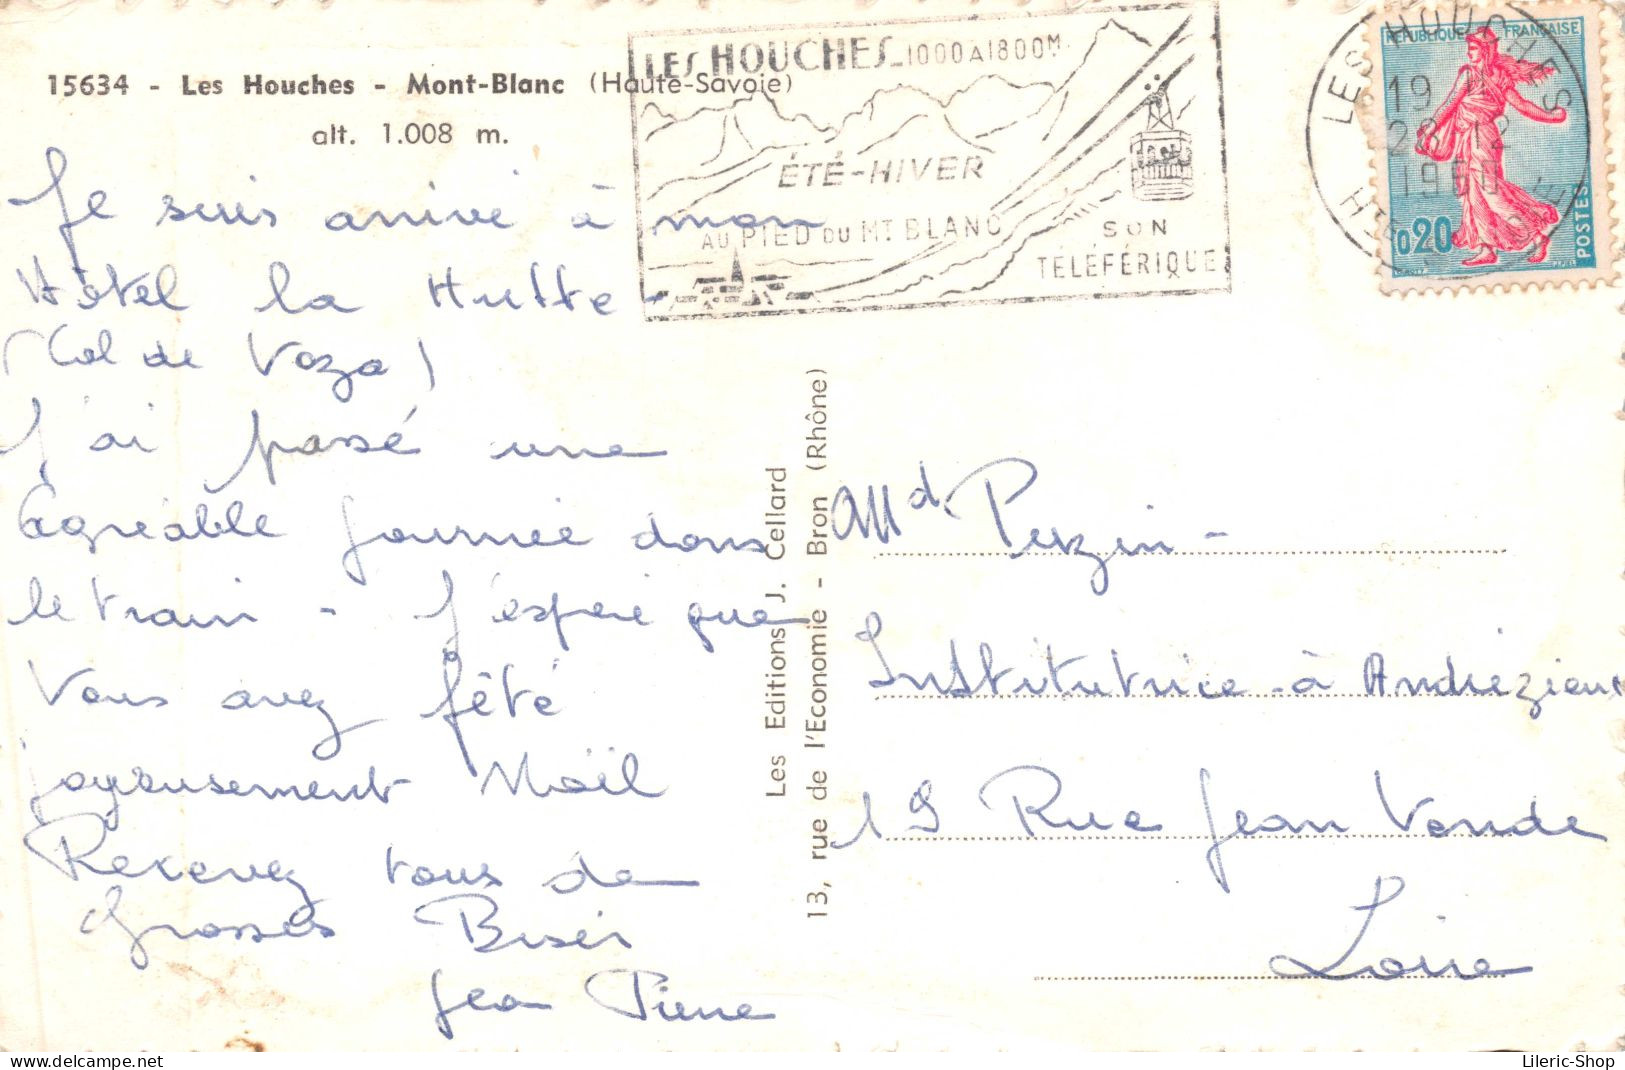 15634 - Les Houches - Mont-Blanc (Haute-Savoie)
alt. 1.008 m.
LES HOUCHES_1000A1800M.
ÉTÉ-HIVER
AU PIED DU MT BLANC
SON
TÉLÉFÉRIQUE
LES HOUCHES
19 H
28-12
1960
HTE SAVOIE
REPUBLIQUE FRANÇAISE
0,20
POSTES
Je suis arrivé à mon
Hôtel la Hutte -
(Col de Voza)
J'ai passé une
agréable journée dans
le train - J'espère que
Vous avez fêté
joyeusement Noël
Recevez tous de
Grosses Bises
Jean Pierre
Les Editions J. Cellard
13, rue de l'Economie - Bron (Rhône)
Md Perzin -
Institutrice à Andrézieux
19 Rue Jean Vende
Loire
Lileric-Shop